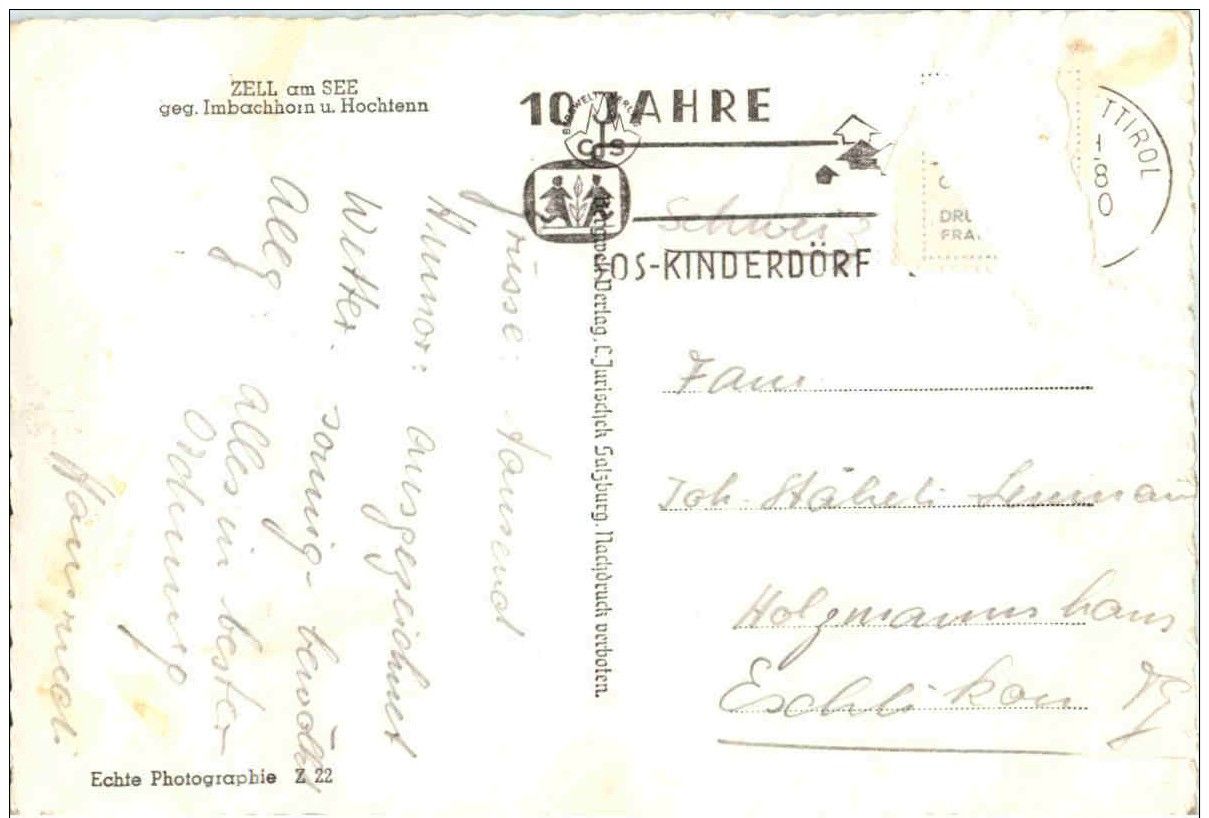 ZELL am SEE
geg. Imbachhorn u. Hochtenn
10 JAHRE
CdS
OS-KINDERDÖRF
TTIROL
1
8
0
DRU
FRA
Schweiz
Grüsse: tausend
Humor: ausgezeichnet
Wetter: sonnig- bewölkt
Allg: Alles in bester
Ordnung
Hansruedi
Verlag, C. Jurischek Salzburg. Nachdruck verboten.
Fam
Joh. Stäheli
Holzmannshaus
Eschlikon TG
Echte Photographie Z 22